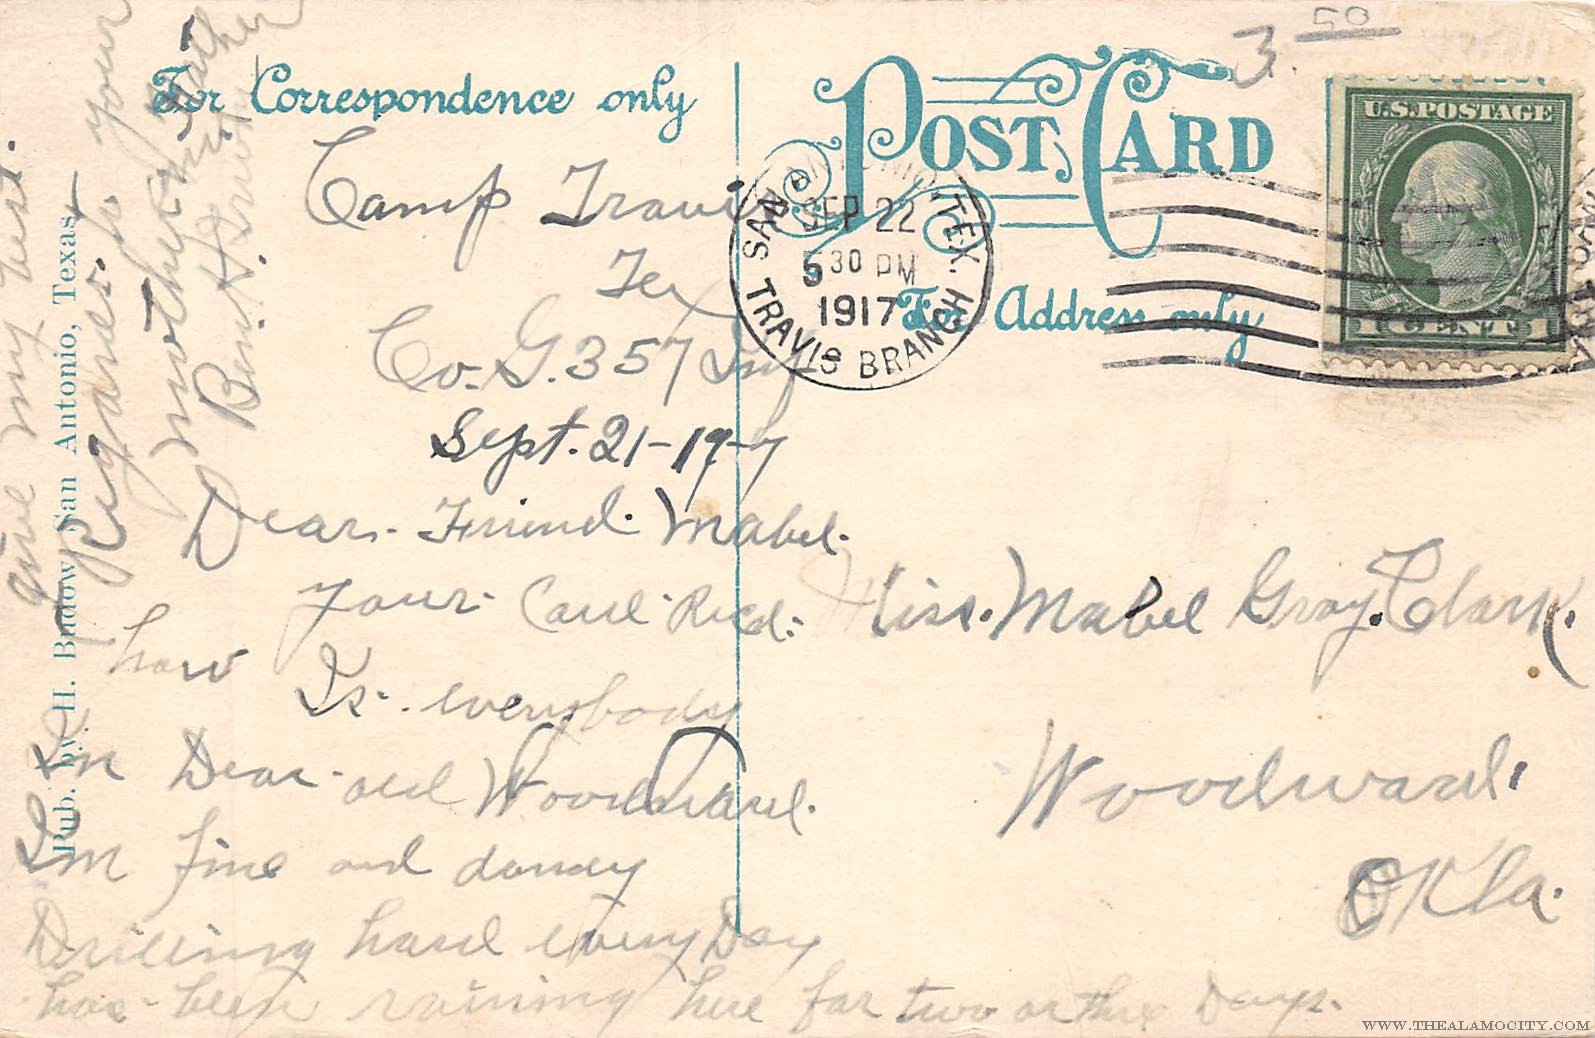 3 50
For Correspondence only
POST CARD
For Address only
U.S. POSTAGE
1 CENT 1
SAN ANTONIO, TEX.
SEP 22
5 30 PM
1917
TRAVIS BRANCH
Camp Travis
Tex
Co. G. 357 Inf
Sept. 21-19-7
Dear. Friend. Mabel.
Your. Card. Recd.
how Is. everybody
In Dear old Woodward.
Im fine and dandy
Drilling hard every Day
has been raining here for two or three Days.
give my best.
Regards. to your
mother and Father
Ben. H.
Miss. Mabel Gray. Clark.
Woodward.
Okla.
Pub. by H. Budow San Antonio, Texas
WWW.THEALAMOCITY.COM